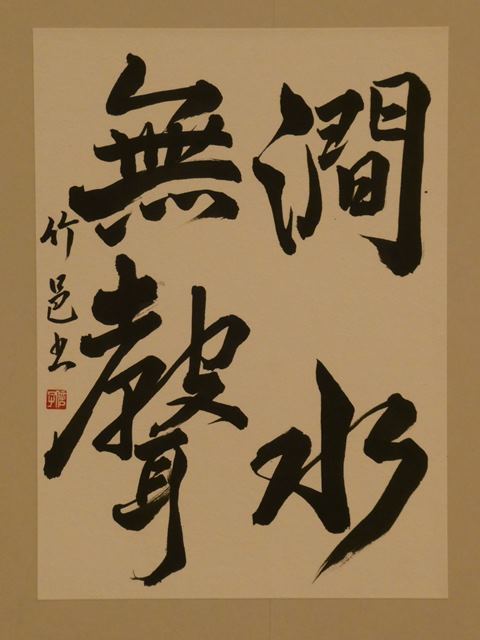 澗水
無聲
竹邑书